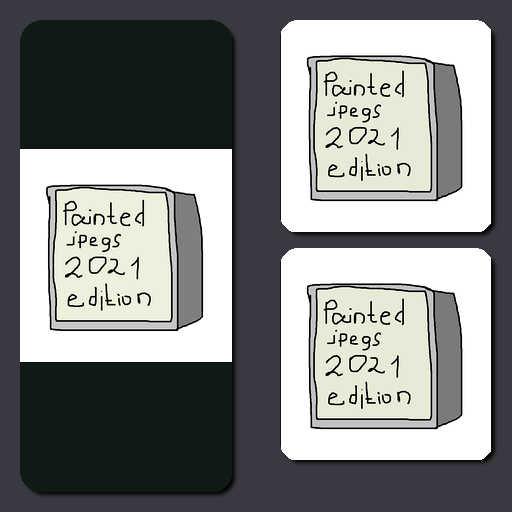 Painted
jpegs
2021
edition
Painted
jpegs
2021
edition
Painted
jpegs
2021
edition